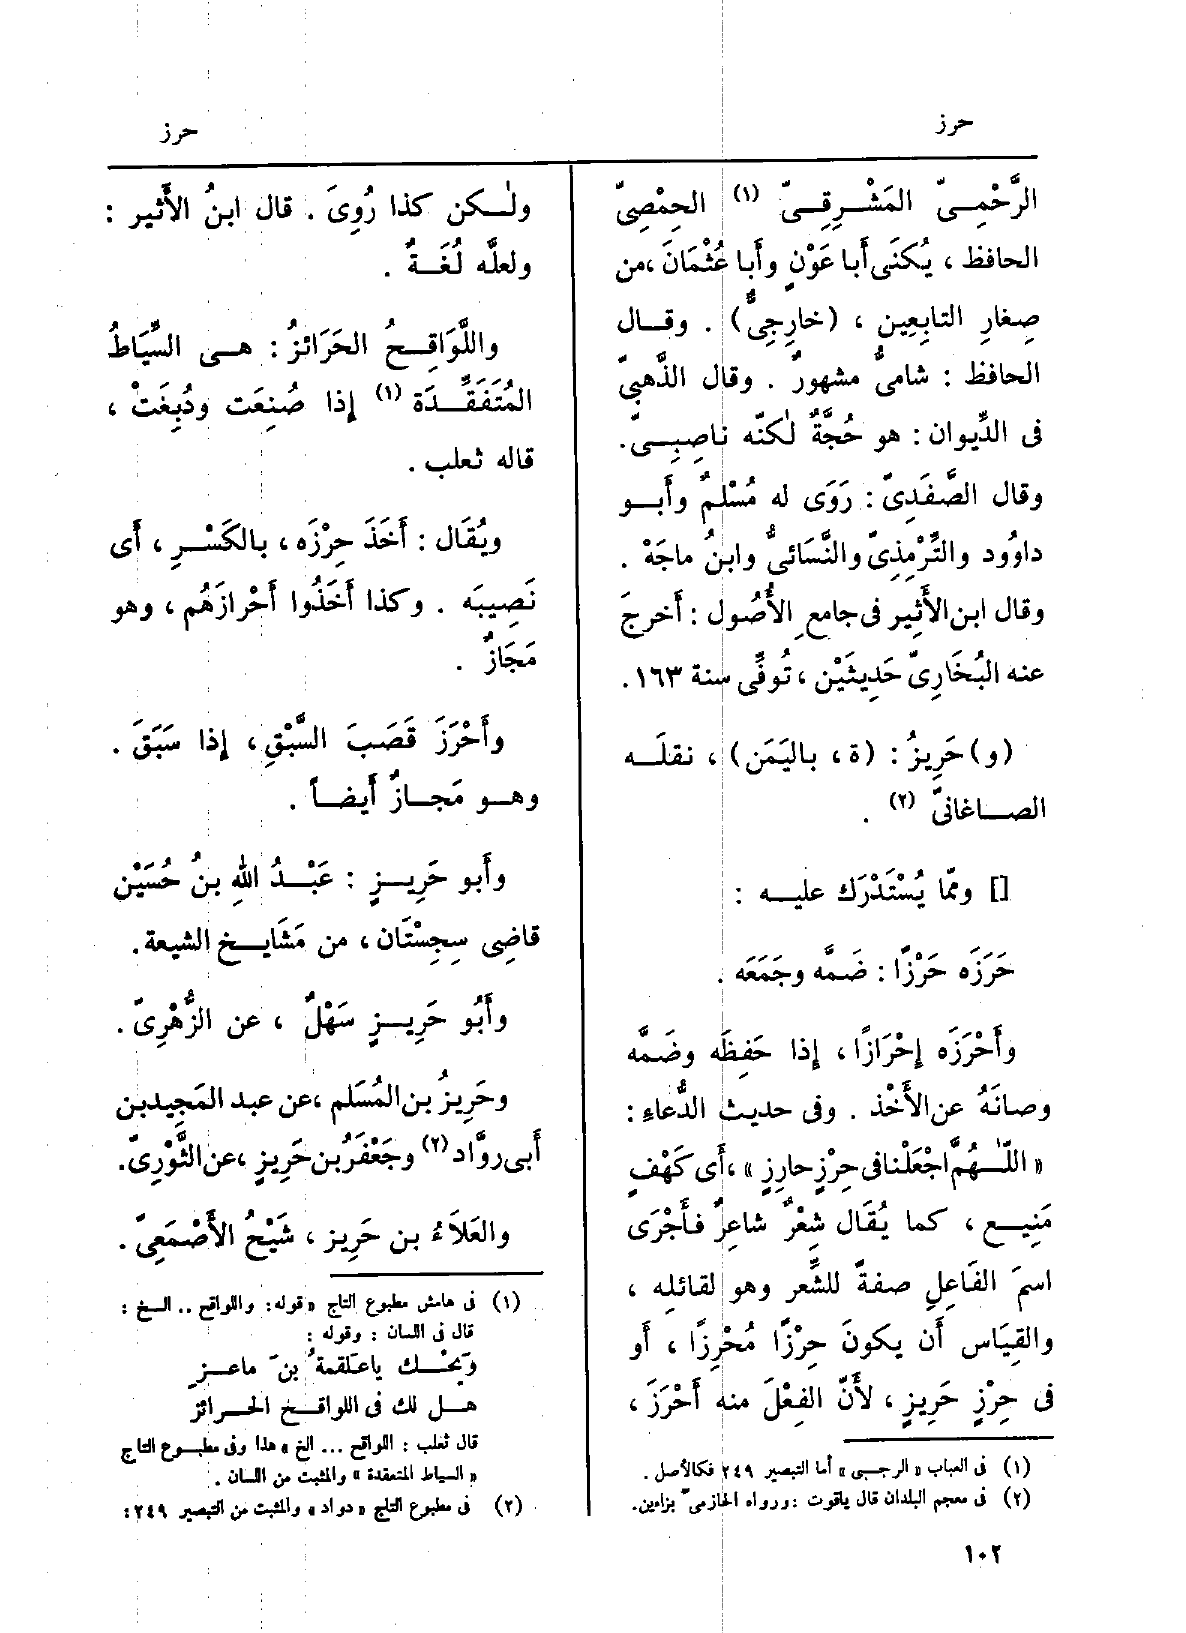 حرز
حرز
الرَّحْمِـيّ المَشْرِقِـيّ (١) الحِمْصِيّ
الحافظ ، يُكنَى أَبا عَوْنٍ وأَبا عُثْمَانَ ،من
صِغارِ التابِعِين ، (خارِجِىٌّ) . وقـال
الحافظ : شامىٌّ مشهورٌ . وقال الذَّهبىّ
فى الدِّيوان : هو حُجَّةٌ لٰكنّه ناصِبِـىّ.
وقال الصَّفَدِىّ : رَوَى له مُسْلمٌ وأَبـو
داوُود والتِّرْمِذِىّ والنَّسَائىُّ وابنُ ماجَهْ .
وقال ابن الأَثِير فى جامع الأُصُول : أَخرجَ
عنه البُخَارِىّ حَدِيثَيْن ، تُوفِّى سنة ١٦٣.
(و) حَرِيزُ : (ة ، باليَمَن) ، نقلَـه
الصـاغانىّ (٢) .
[] وممّا يُسْتَدْرَك عليـه :
حَرَزَه حَرْزًا : ضَمَّه وجَمَعَه .
وأَحْرَزَه إِحْرَازًا ، إِذا حَفِظَه وضَمَّه
وصانَهُ عن الأَخْذ . وفى حديث الدُّعاءِ :
« اللّٰـهُمَّ اجْعَلْنا فى حِرْزٍ حارِزٍ » ،أَى كَهْفٍ
مَنِيـع ، كما يُقَال شِعْرٌ شاعِرٌ فأَجْرَى
اسمَ الفَاعِلِ صفةً للشِّعر وهو لقائله ،
والقِيَاس أَن يكونَ حِرْزًا مُحْرِزًا ، أَو
فى حِرْزٍ حَرِيزٍ ، لأَنّ الفِعْلَ منه أَحْرَزَ ،
(١) فى العباب « الرحبـى » أما التبصير ٢٤٩ فكالأصل .
(٢) فى معجم البلدان قال ياقوت : ورواه الحازمىّ بزاءين.
ولٰـكن كذا رُوِىَ . قال ابنُ الأَثير :
ولعلَّه لُغَـةٌ .
واللَّوَاقِـحُ الحَرَائزُ : هـى السِّيَاطُ
المُتَفَقَّـدَة (١) إِذا صُنِعَت ودُبِغَتْ ،
قاله ثعلب .
ويُقَال : أَخَذَ حِرْزَه ، بالكَسْـرِ ، أَى
نَصِيبَه . وكذا أَخَذُوا أَحْرازَهُم ، وهو
مَجَازٌ .
وأَحْرَزَ قَصَبَ السَّبْقِ ، إِذا سَبَقَ .
وهـو مَجـازٌ أَيضـاً .
وأَبو حَرِيـزٍ : عَبْـدُ اللهِ بنُ حُسَيْن
قاضِى سِجِسْتَان ، من مَشَايـخ الشيعة .
وأَبُو حَرِيـزٍ سَهْلٌ ، عن الزُّهْرِىّ .
وحَرِيزُ بن المُسَلم ،عن عبد المَجِيد بن
أَبى روَّاد (٢) وجَعْفَرُ بن حَرِيزٍ ،عن الثَّوْرِىّ.
والعَلَاءُ بن حَرِيز ، شَيْخُ الأَصْمَعِىّ .
(١) فى هامش مطبوع التاج « قوله : واللواقح .. الـخ :
قال فى اللسان : وقوله :
وَيحَـك ياعـلقمةُ بنَ ماعـزِ
هـل لك فى اللواقـح الحـرائز
قال ثعلب : اللواقح ... الخ » هذا وفى مطبـوع التاج
« السياط المتعقدة » والمثبت من اللسان .
(٢) فى مطبوع التاج « دواد » والمثبت من التبصير ٢٤٩ :
١٠٢